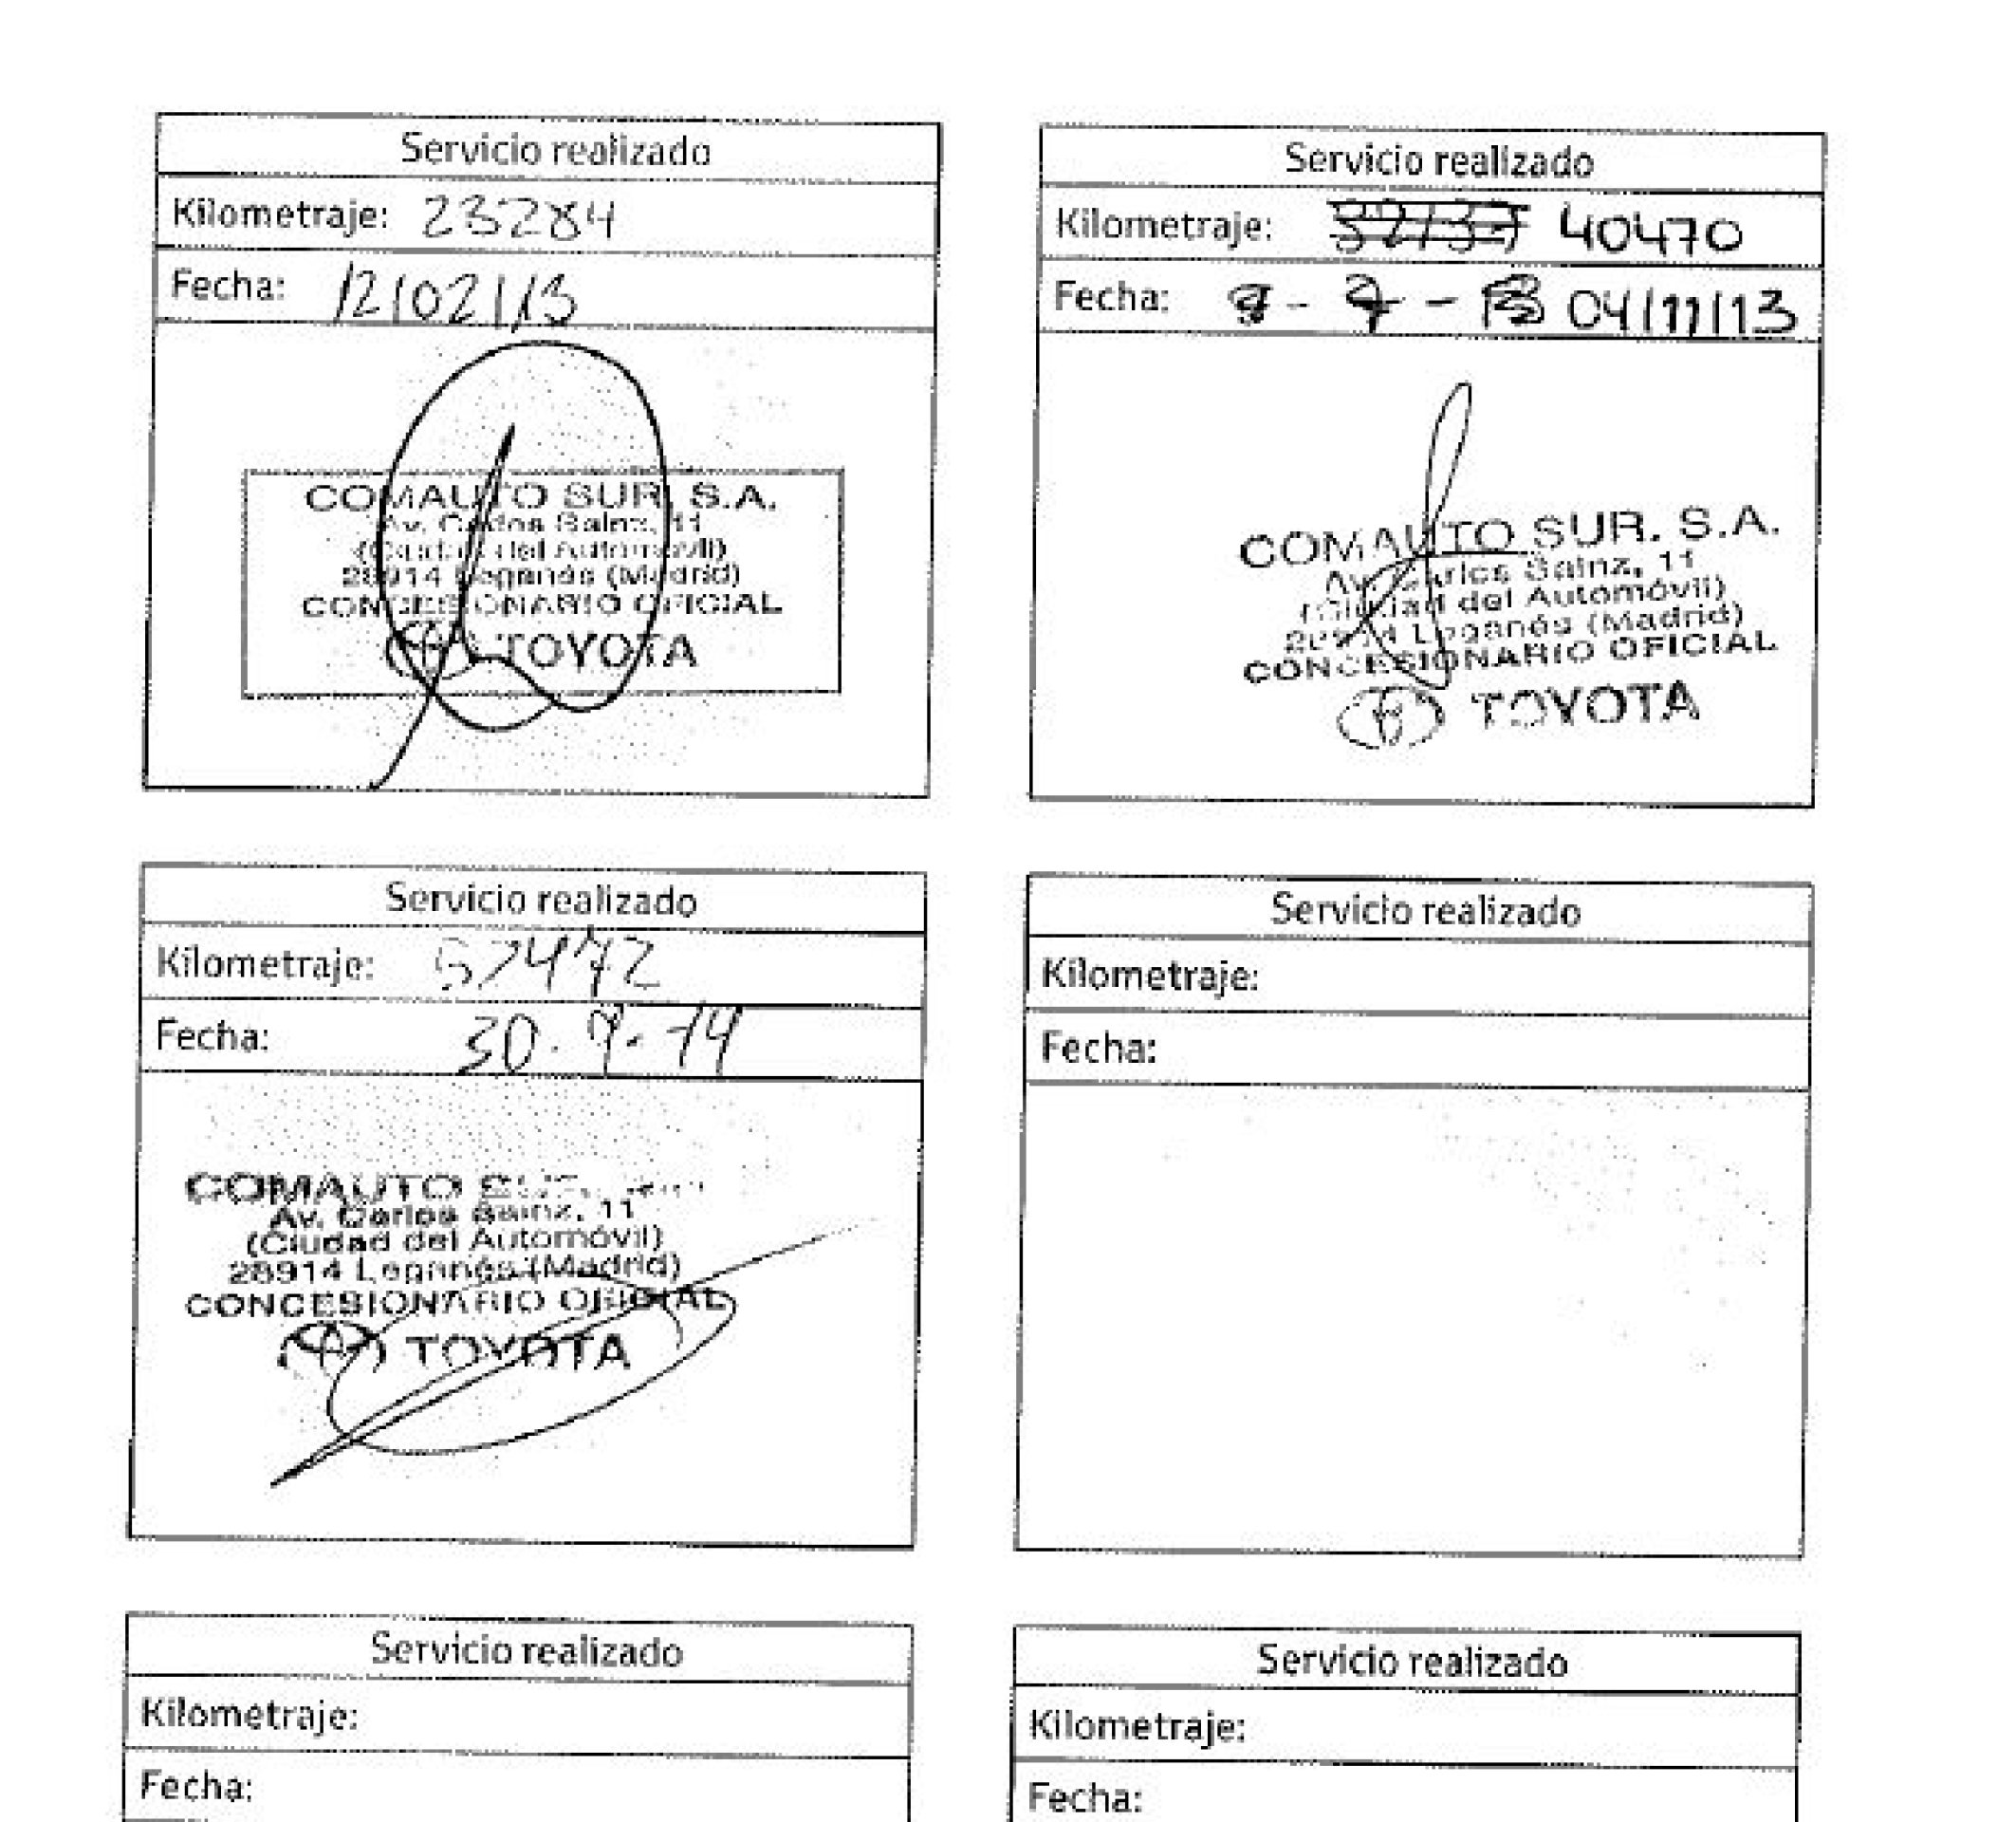 Servicio realizado
Kilometraje: 23284
Fecha: 12/02/13
COMAUTO SUR, S.A.
Av. Carlos Sainz, 11
(Ciudad del Automóvil)
28914 Leganés (Madrid)
CONCESIONARIO OFICIAL
TOYOTA
Servicio realizado
Kilometraje: 32137 40470
Fecha: 04/11/13
COMAUTO SUR. S.A.
Av. Carlos Sainz, 11
(Ciudad del Automóvil)
28914 Leganés (Madrid)
CONCESIONARIO OFICIAL
TOYOTA
Servicio realizado
Kilometraje: 52472
Fecha: 30.9.14
COMAUTO
Av. Carlos Sainz, 11
(Ciudad del Automóvil)
28914 Leganés (Madrid)
CONCESIONARIO OFICIAL
TOYOTA
Servicio realizado
Kilometraje:
Fecha:
Servicio realizado
Kilometraje:
Fecha:
Servicio realizado
Kilometraje:
Fecha: